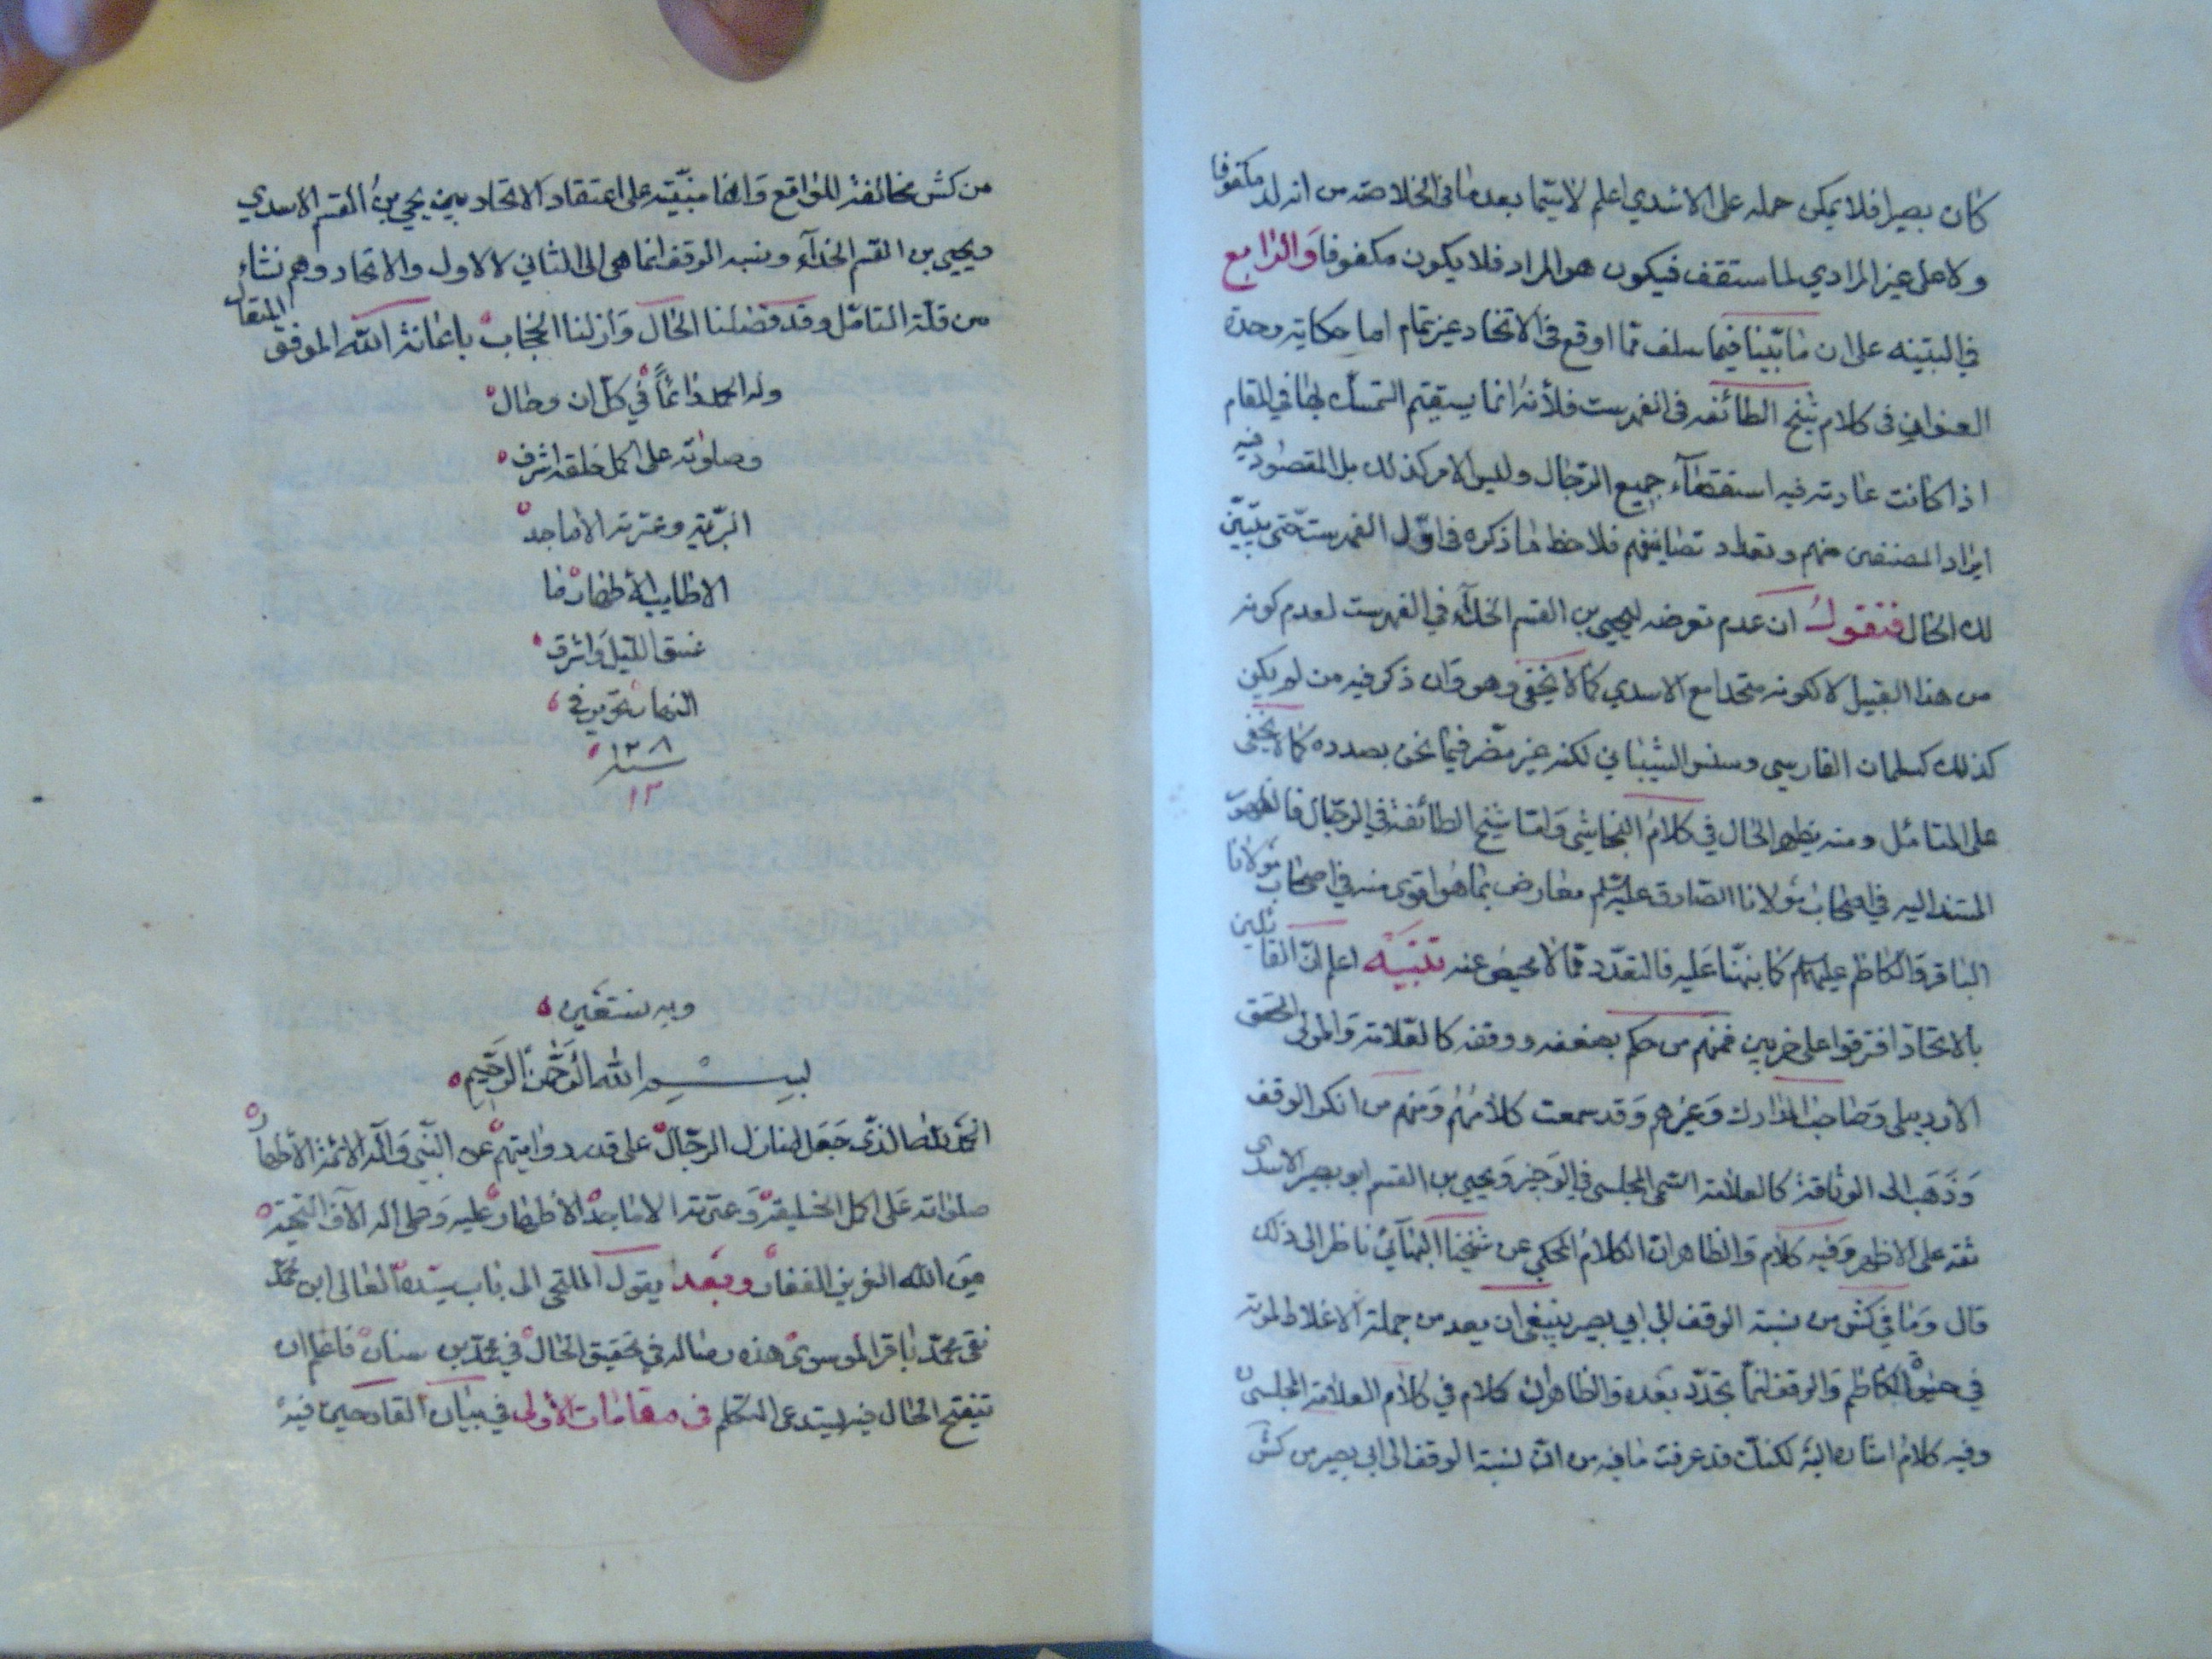 كان بصيرا فلا يمكن حمله على الاسدي اعلم لا سيّما بعد ما في الخلاصة من انه ولد مكفوفا
ولا على غير المرادي لما ستقف فيكون هو المراد فلا يكون مكفوفا والرابع
في التنبيه على ان ما بيّنا فيما سلف ممّا اوقع في الاتحاد غير تمام اما حكاية وحدة
العنوان في كلام شيخ الطائفه في الفهرست فلأنه انما يستقيم التمسك بها في المقام
اذا كانت عادته فيه استقصآء جميع الرّجال وليس الامر كذلك بل المقصود فيه
ايراد المصنفين منهم وتعداد تصانيفهم فلاحظ ما ذكره في اوّل الفهرست حتى يتبيّن
لك الحال فنقول ان عدم تعرضه ليحيى بن القسم الحذآء في الفهرست لعدم كونه
من هذا القبيل لا لكونه متحدا مع الاسدي كما لا يخفى وهو وان ذكر فيه من لم يكن
كذلك كسلمان الفارسي وسنن الشيباني لكنه غير مضر فيما نحن بصدده كما لا يخفى
على المتامّل ومنه يظهر الحال في كلام النجاشي وامّا شيخ الطائفة في الرجال فالعدد هو
المستند اليه في اصحاب مولانا الصّادق عليه السّلم معارض بما هو اقوى منه في اصحاب مولانا
الباقر والكاظم عليهما السلام كما نبهنا عليه فالتعدّد ممّا لا محيص عنه تنبيه اعلم انّ القائلين
بالاتحاد افترقوا على ضربين فمنهم من حكم بضعفه ووقفه كالعلّامة والمولى المحقق
الأردبيلي وصاحب المدارك وغيرهم وقد سمعت كلامهم ومنهم من انكر الوقف
وذهب الى الوثاقة كالعلامة السّمي المجلسي في الوجيز ويحيى بن القسم ابو بصير الاسدى
ثقة على الاظهر وفيه كلام والظاهر انّ الكلام المحكي عن شيخنا البهآئي ناظر الى ذلك
قال وما في كش من نسبة الوقف الى ابي بصير ينبغي ان يعد من جملة الاغلاط لموته
في حيوة الكاظم والوقف انّما تجدّد بعده والظاهر ان كلام في كلام العلامة المجلسي
وفيه كلام اشاره اليه لكنك قد عرفت ما فيه من انّ نسبة الوقف الى ابي بصير من كش
من كش مخالفة للواقع وانها مبنيّة على اعتقاد الاتحاد بين يحيى بن القسم الاسدي
ويحيى بن القسم الحذآء ونسبة الوقف انما هي الى الثاني لا الاول والاتحاد وهم نشاء
من قلة التامّل وقد فصّلنا الحال وازلنا الحجاب باعانة الله الموفق المتعال
وله الحمد دائماً في كلّ ان وحال
وصلوته على اكمل خلقه اشرف
البرّية وعترته الاماجد
الاطايب الأطهار ما
غسق الليل واشرق
النهار تحرير في
سنة ١٢٠٨
١٢
وبه نستعين
بسم الله الرّحمن الرّحيم
الحمد لله الذي جعل منازل الرجال على قدر روايتهم عن النّبي وآله الائمة الأطهار
صلواته على اكمل الخليقة وعترته الاماجد الأطهار عليه وعلى اله الآف التحية
من الله العزيز الغفار وبعد يقول الملتجى الى باب سيّده العالى ابن محمد
نقى محمّد باقر الموسوى هذه رسالة في تحقيق الحال في محمّد بن سنان فاعلم ان
تنقيح الحال فيه يستدعى التكلم في مقامات الأولى في بيان القادحين فيه